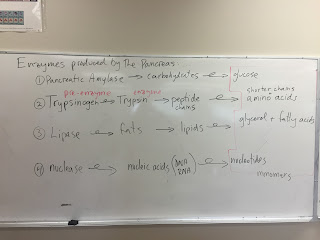 Enzymes produced by the Pancreas:
① Pancreatic Amylase → carbohydrates → glucose
pre-enzyme enzyme shorter chains
② Trypsinogen → Trypsin → peptide chains → amino acids
③ Lipase → fats → lipids → glycerol + fatty acids
④ nuclease → nucleic acids (DNA RNA) → nucleotides
monomers